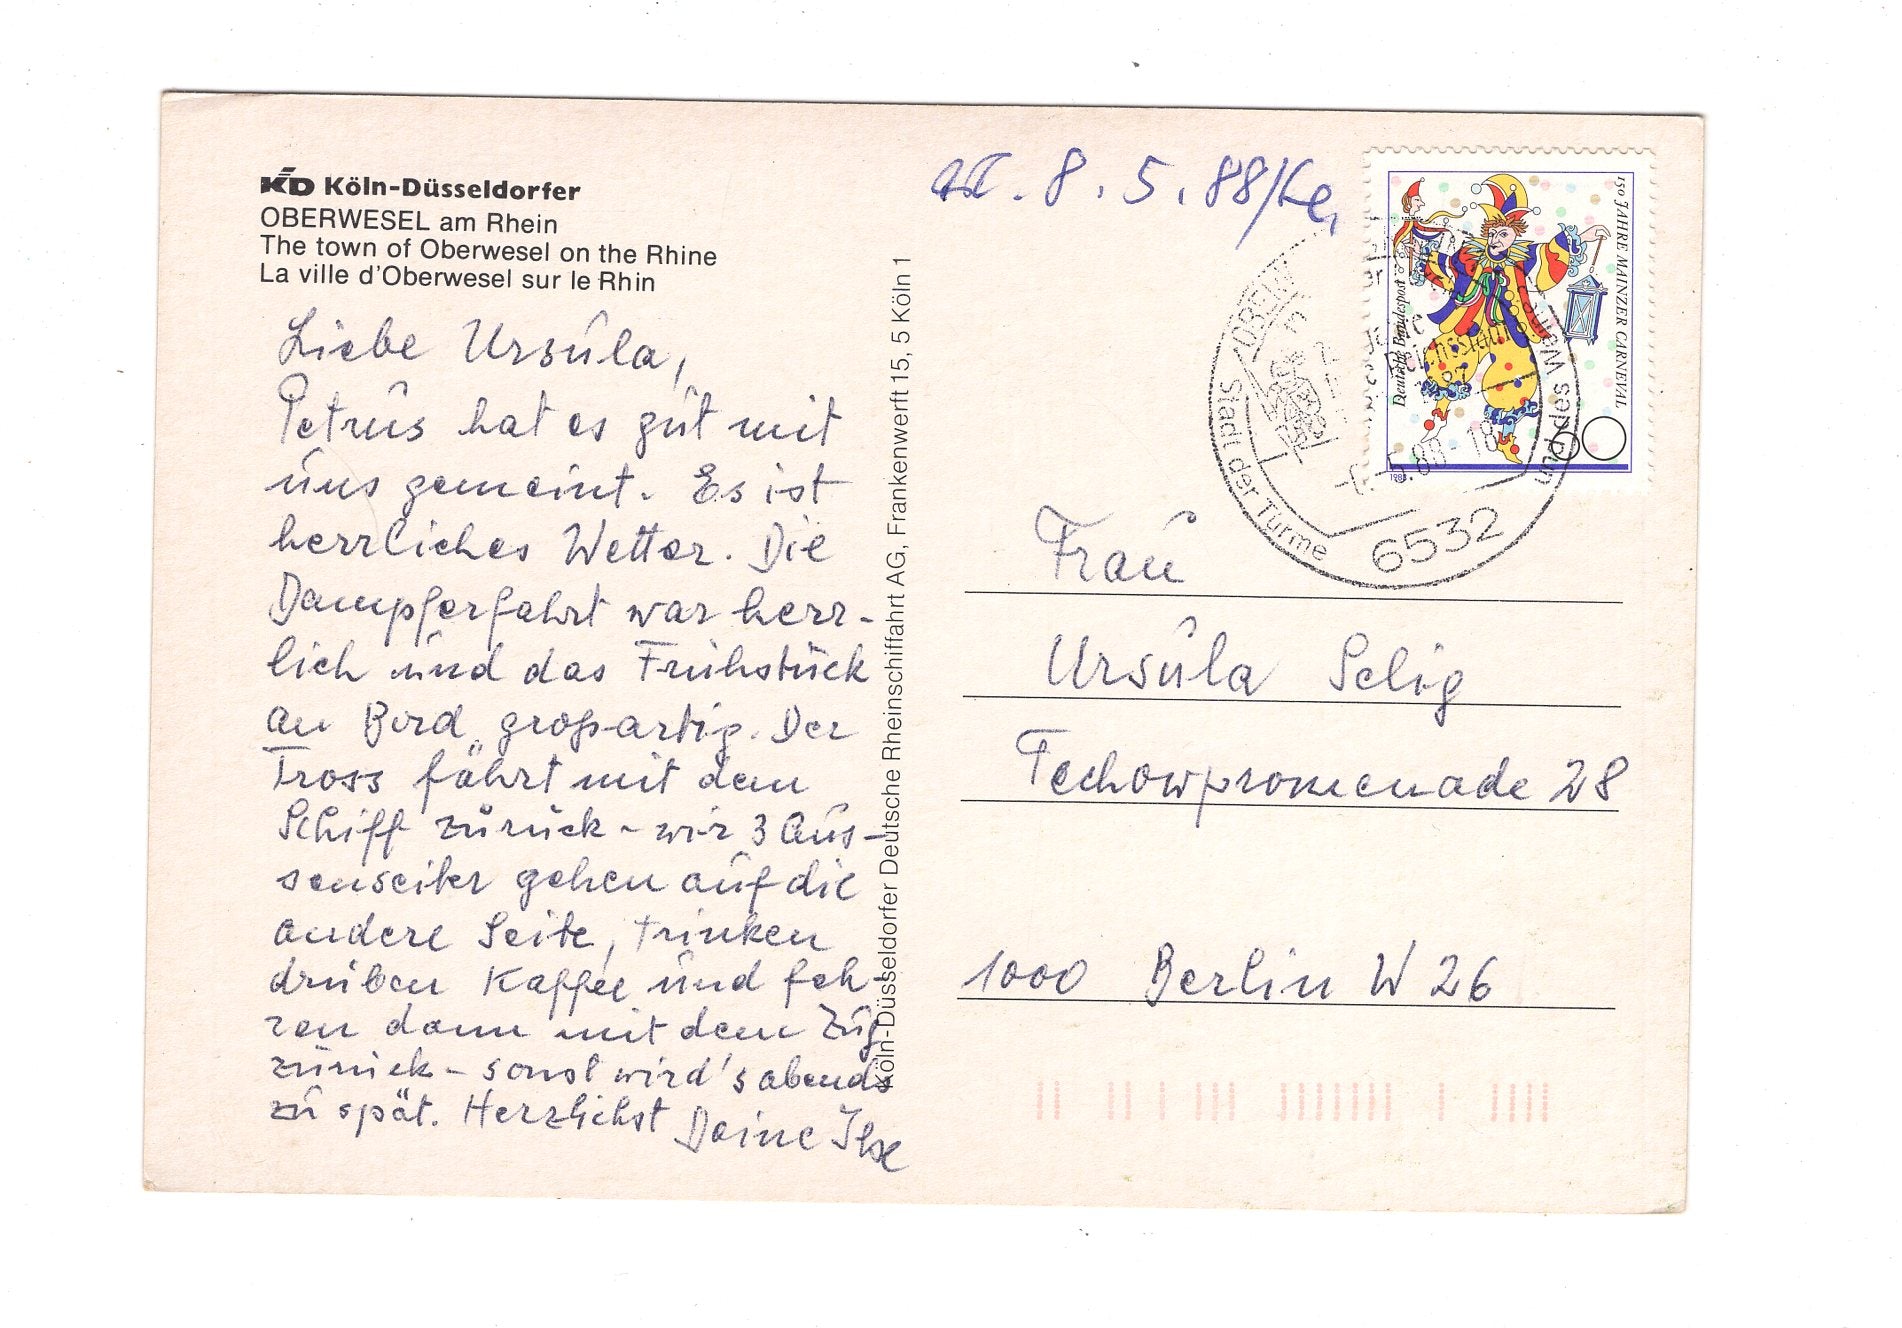 KD Köln-Düsseldorfer
OBERWESEL am Rhein
The town of Oberwesel on the Rhine
La ville d'Oberwesel sur le Rhin
Liebe Ursula,
Petrus hat es gut mit
uns gemeint. Es ist
herrliches Wetter. Die
Dampferfahrt war herr-
lich und das Frühstück
an Bord großartig. Der
Tross fährt mit dem
Schiff zurück - wir 3 Aus-
senseiter gehen auf die
andere Seite, trinken
drüben Kaffee und fah-
ren dann mit dem Zug
zurück - sonst wird's abends
zu spät. Herzlichst Deine Ilse
Köln-Düsseldorfer Deutsche Rheinschiffahrt AG, Frankenwerft 15, 5 Köln 1
8.5.88
150 JAHRE MAINZER CARNEVAL
Deutsche Bundespost
60
1988
Stadt der Türme
und des Weins
6532
5.88-18
Frau
Ursula Selig
Techowpromenade 28
1000 Berlin W 26